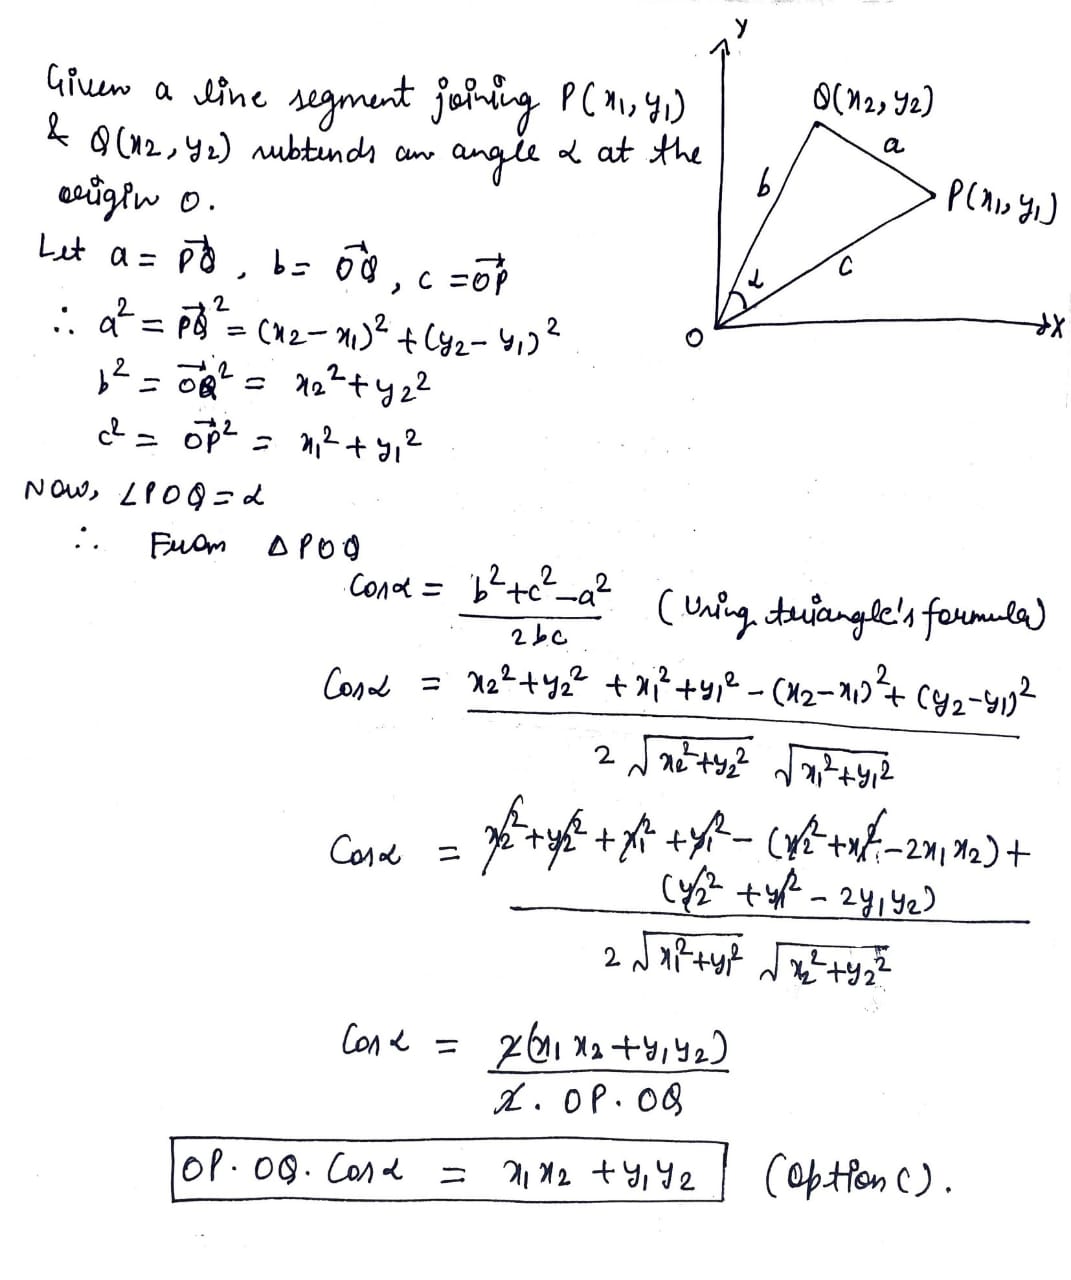 Given a line segment joining P(x₁, y₁)
& Q(x₂, y₂) subtends an angle α at the
origin O.
Let a = PQ⃗, b = OQ⃗, c = OP⃗
∴ a² = PQ⃗² = (x₂ − x₁)² + (y₂ − y₁)²
b² = OQ⃗² = x₂² + y₂²
c² = OP⃗² = x₁² + y₁²
Now, ∠POQ = α
∴ From △POQ
Cosα = b² + c² − a² / 2bc (Using triangle's formula)
Cosα = x₂² + y₂² + x₁² + y₁² − (x₂ − x₁)² + (y₂ − y₁)²
2 √x₂² + y₂² √x₁² + y₁²
Cosα = x₂² + y₂² + x₁² + y₁² − (x₂² + x₁² − 2x₁x₂) +
(y₂² + y₁² − 2y₁y₂)
2 √x₁² + y₁² √x₂² + y₂²
Cosα = 2(x₁x₂ + y₁y₂)
2. OP. OQ
OP. OQ. Cosα = x₁x₂ + y₁y₂ (option C).
Y
Q(x₂, y₂)
a
b
P(x₁, y₁)
c
α
O
X